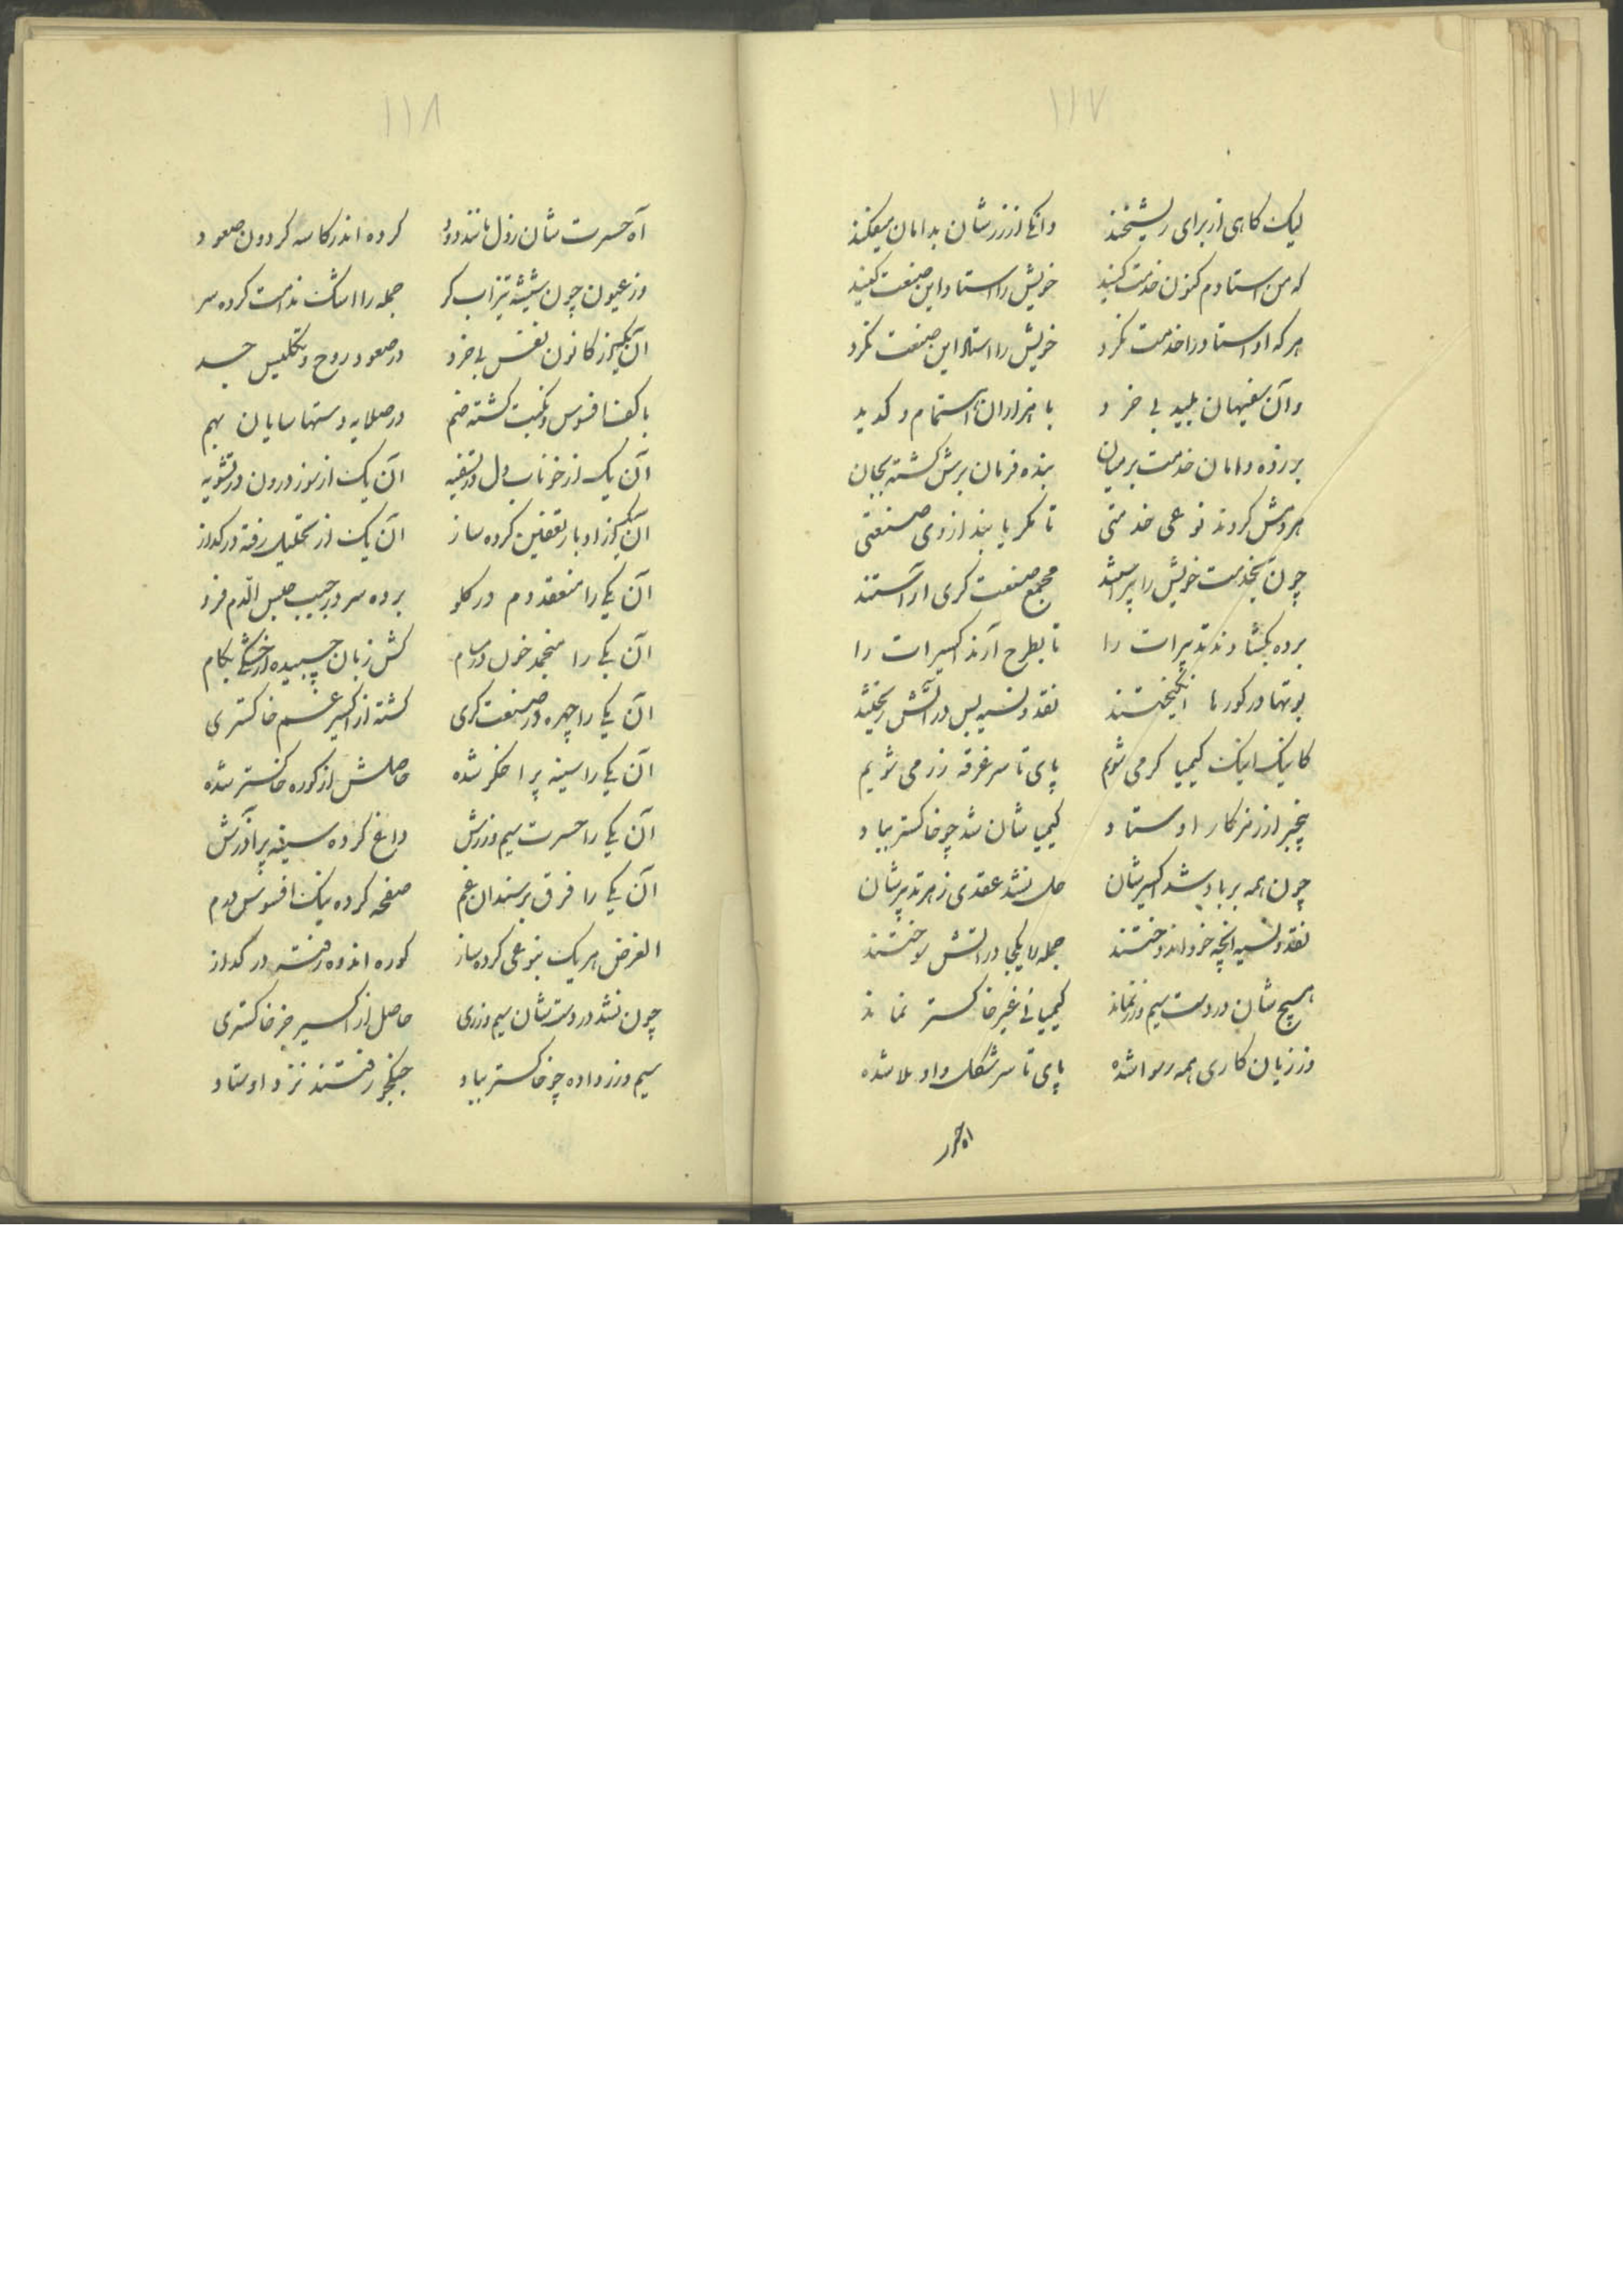 ۱۱۷
لیک کاهی از برای ریشخند دانکی از زرشان بدامان میفکند
که من استادم کنون خدمت کنید خویش را استاد این صنعت کنید
هر که او استاد را خدمت نکرد خویش را استاد این صنعت نکرد
وآن سفیهان بلید بی خرد با هزاران اهتمام و کدید
بر زده دامان خدمت بر میان بنده فرمان برش کشته بجان
هر دمش کردند نوعی خدمتی تا مکر یابند از وی صنعتی
چون بخدمت خویش را پیراستند مجمع صنعت کری آراستند
برده بکشادند تدبیرات را تا بطرح آرند اکسیرات را
بوتها در کورها انکیختند نقد و نسیه بس در آتش ریختند
کاینک اینک کیمیا کر می شویم پای تا سر غرقه زر می شویم
بیخبر از رمز کار اوستاد کیمیاشان شد چو خاکستر بباد
چون همه بر باد شد اکسیرشان حل نشد عقدی ز هر تدبیرشان
نقد و نسیه آنچه خود اندوختند جمله را یکجا در آتش سوختند
هیچشان در دست سیم و زر نماند کیمیائی غیر خاکستر نماند
وز زیان کاری همه رسوا شده پای تا سر شکل واویلا شده
۱۱۸
آه حسرت شان ز دل مانند دود کرده اندر کاسه کردون صعود
وز عیون چون شیشه تیزاب کر جمله را اشک ندامت کرده سر
آن یکی از کانون نفس بی خرد در صعود روح و تکلیس جسد
با کف افسوس و نکبت کشته ضم در صلایه دستها سایان بهم
آن یک از خوناب دل در تسقیه آن یک از سوز درون در تشویه
آن یکی از ادبار تعفین کرده ساز آن یک از تحلیل رفته در کداز
آن یکی را منعقد دم در کلو برده سر در جیب حبس الدم فرو
آن یکی را منجمد خون در مسام کش زبان چسبیده از خشکی بکام
آن یکی را چهره در صنعت کری کشته از اکسیر غم خاکستری
آن یکی را سینه پر اخکر شده حاصلش از کوره خاکستر شده
آن یکی را حسرت سیم و زرش داغ کرده سینه پر آذرش
آن یکی را فرق بر سندان غم صفحه کرده پتک افسوس و ندم
الغرض هر یک بنوعی کرده ساز کوره اندوه و رفته در کداز
چون نشد در دستشان سیم و زری حاصل از اکسیر جز خاکستری
سیم و زر داده چو خاکستر بباد جنکجو رفتند نزد اوستاد